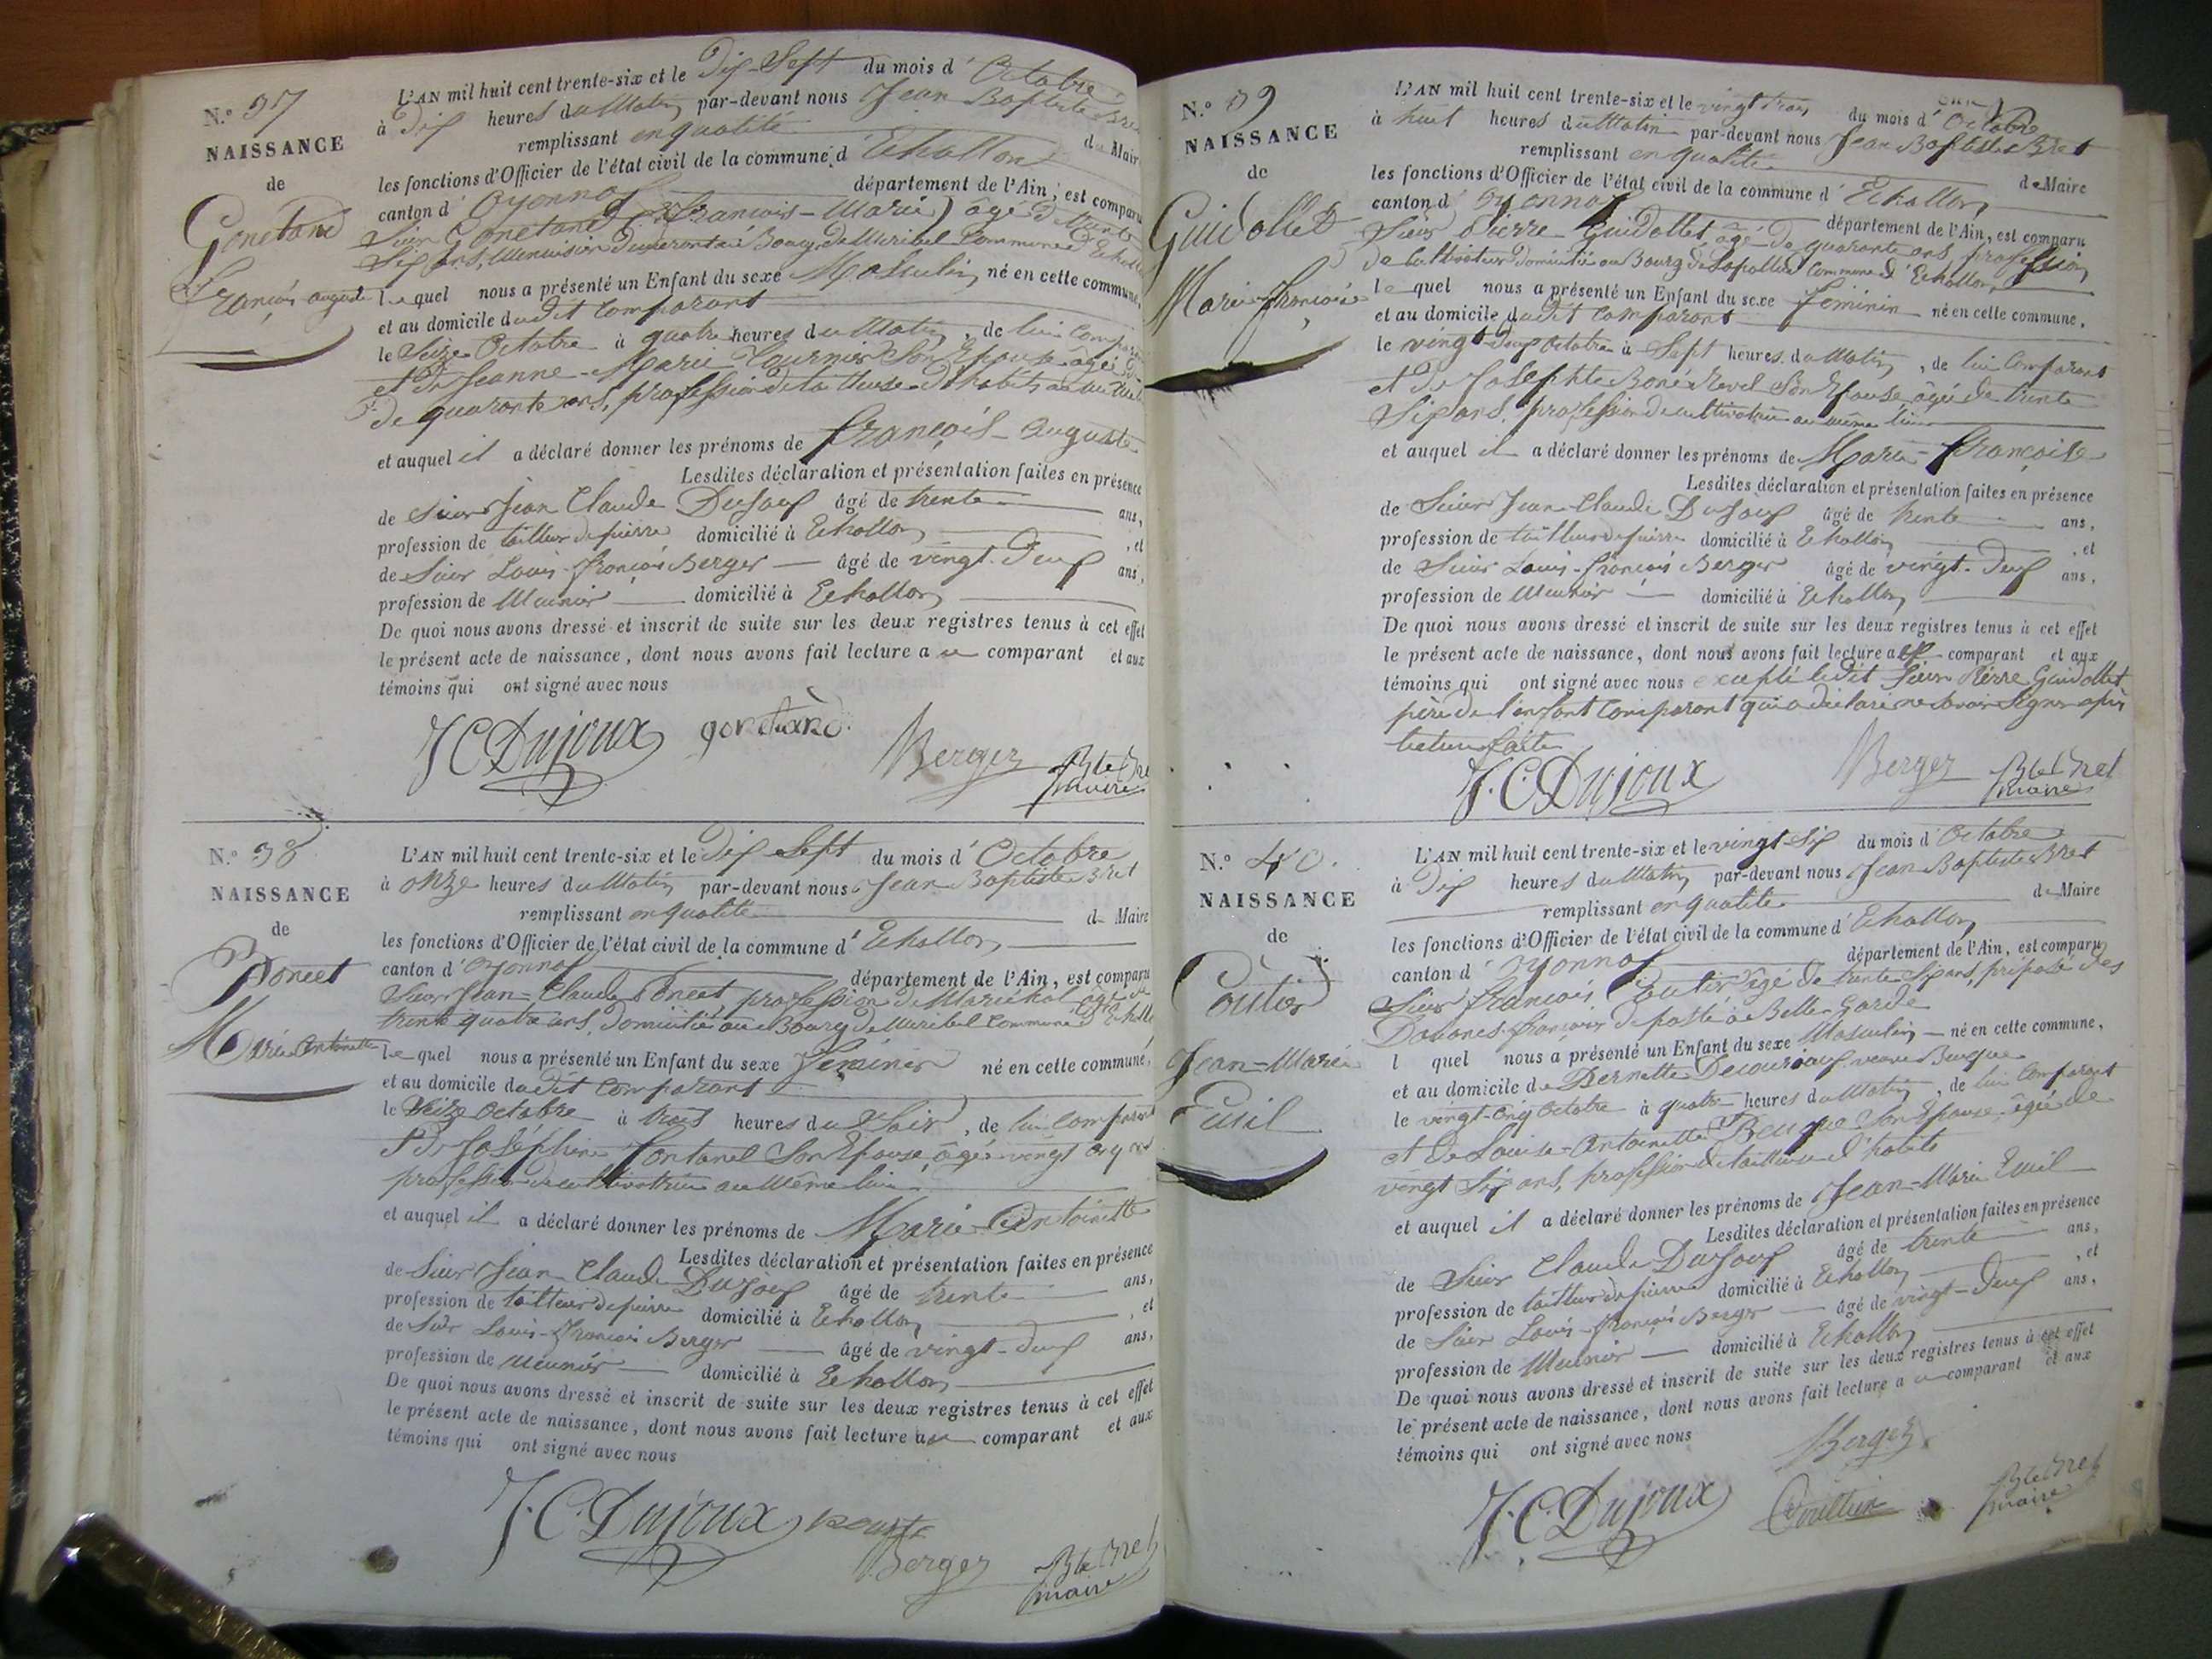 N.º 37
NAISSANCE
de
Gonetand
François auguste
L'AN mil huit cent trente-six et le Dix-Sept du mois d'Octobre
à Dix heures du Matin par-devant nous Jean Baptiste Bret
remplissant en qualité de Maire
les fonctions d'Officier de l'état civil de la commune d'Echallon
canton d'Oyonnax département de l'Ain, est comparu
Sieur Gonetand (François-Marie) âgé de trente
Six ans, Menuisier demeurant au Bourg de Miribel Commune d'Echallon
lequel nous a présenté un Enfant du sexe Masculin, né en cette commune,
et au domicile dudit Comparant
le Seize Octobre à quatre heures du Matin, de lui Comparant
et de Jeanne-Marie Tournier Son Epouse âgée
de quarante ans, profession de tailleuse d'habits au
et auquel il a déclaré donner les prénoms de françois-Auguste
Lesdites déclaration et présentation faites en présence
de Sieur Jean Claude Dujoux âgé de trente ans,
profession de tailleur de pierre domicilié à Echallon, et
de Sieur Louis-François Berger âgé de vingt-Deux ans,
profession de Meunier domicilié à Echallon
De quoi nous avons dressé et inscrit de suite sur les deux registres tenus à cet effet
le présent acte de naissance, dont nous avons fait lecture au comparant et aux
témoins qui ont signé avec nous
J C Dujoux gonetand Berger Bte Bret
maire
N.º 38
NAISSANCE
de
Poncet
Marie Antoinette
L'AN mil huit cent trente-six et le Dix Sept du mois d'Octobre
à onze heures du Matin par-devant nous Jean Baptiste Bret
remplissant en qualité de Maire
les fonctions d'Officier de l'état civil de la commune d'Echallon
canton d'Oyonnax département de l'Ain, est comparu
Sieur Jean-Claude Poncet profession de Maréchal âgé de
trente quatre ans, Domicilié au Bourg de Miribel Commune d'Echallon
lequel nous a présenté un Enfant du sexe Féminin né en cette commune,
et au domicile dudit Comparant
le Seize Octobre à trois heures du Soir, de lui Comparant
et de Joséphine Fontanel Son Epouse âgée vingt cinq ans
profession de cultivatrice au Même lieu
et auquel il a déclaré donner les prénoms de Marie-Antoinette
Lesdites déclaration et présentation faites en présence
de Sieur Jean Claude Dujoux âgé de trente ans,
profession de tailleur de pierre domicilié à Echallon, et
de Sieur Louis-François Berger âgé de vingt-deux ans,
profession de Meunier domicilié à Echallon
De quoi nous avons dressé et inscrit de suite sur les deux registres tenus à cet effet
le présent acte de naissance, dont nous avons fait lecture au comparant et aux
témoins qui ont signé avec nous
J. C. Dujoux
Berger Bte Bret
maire
N.º 39
NAISSANCE
de
Guidollet
Marie-françoise
L'AN mil huit cent trente-six et le vingt trois du mois d'Octobre
à huit heures du Matin par-devant nous Jean Baptiste Bret
remplissant en qualité de Maire
les fonctions d'Officier de l'état civil de la commune d'Echallon
canton d'Oyonnax département de l'Ain, est comparu
Sieur Pierre Guidollet, âgé de quarante ans, profession
de Cultivateur Domicilié au Bourg de Commune d'Echallon
lequel nous a présenté un Enfant du sexe féminin né en cette commune,
et au domicile dudit Comparant
le vingt-deux Octobre à Sept heures du Matin, de lui Comparant
et de Josephte Revel Son Epouse âgée de trente
Six ans, profession de cultivatrice au même lieu
et auquel il a déclaré donner les prénoms de Marie-françoise
Lesdites déclaration et présentation faites en présence
de Sieur Jean-Claude Dujoux âgé de trente ans,
profession de tailleur de pierre domicilié à Echallon, et
de Sieur Louis-françois Berger âgé de vingt-Deux ans,
profession de Meunier domicilié à Echallon
De quoi nous avons dressé et inscrit de suite sur les deux registres tenus à cet effet
le présent acte de naissance, dont nous avons fait lecture au comparant et aux
témoins qui ont signé avec nous excepté ledit Sieur Pierre Guidollet
père de l'enfant Comparant qui a déclaré ne Savoir Signer après
lecture faite
J. C. Dujoux Berger Bte Bret
maire
N.º 40.
NAISSANCE
de
Coutier
Jean-Marie
Emil
L'AN mil huit cent trente-six et le vingt-Six du mois d'Octobre
à Dix heures du Matin par-devant nous Jean Baptiste Bret
remplissant en qualité de Maire
les fonctions d'Officier de l'état civil de la commune d'Echallon
canton d'Oyonnax département de l'Ain, est comparu
Sieur François Coutier âgé de trente Six ans, préposé des
Douanes françaises déposté à Belle-Garde
l quel nous a présenté un Enfant du sexe Masculin né en cette commune,
et au domicile de Pernette veuve
le vingt-cinq Octobre à quatre heures du Matin, de lui Comparant
et de Louise-Antoinette Son Epouse âgée de
vingt Six ans, profession de tailleuse d'habits
et auquel il a déclaré donner les prénoms de Jean-Marie Emil
Lesdites déclaration et présentation faites en présence
de Sieur Claude Dujoux âgé de trente ans,
profession de tailleur de pierre domicilié à Echallon, et
de Sieur Louis-françois Berger âgé de vingt-Deux ans,
profession de Meunier domicilié à Echallon
De quoi nous avons dressé et inscrit de suite sur les deux registres tenus à cet effet
le présent acte de naissance, dont nous avons fait lecture au comparant et aux
témoins qui ont signé avec nous
Berger
J. C. Dujoux Bte Bret
maire